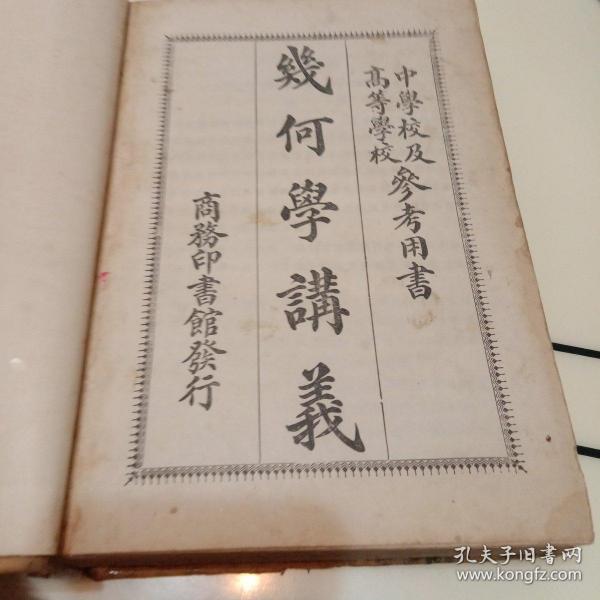 中學校及
高等學校
參考用書
幾何學講義
商務印書館發行
孔夫子旧书网
www.kongfz.com